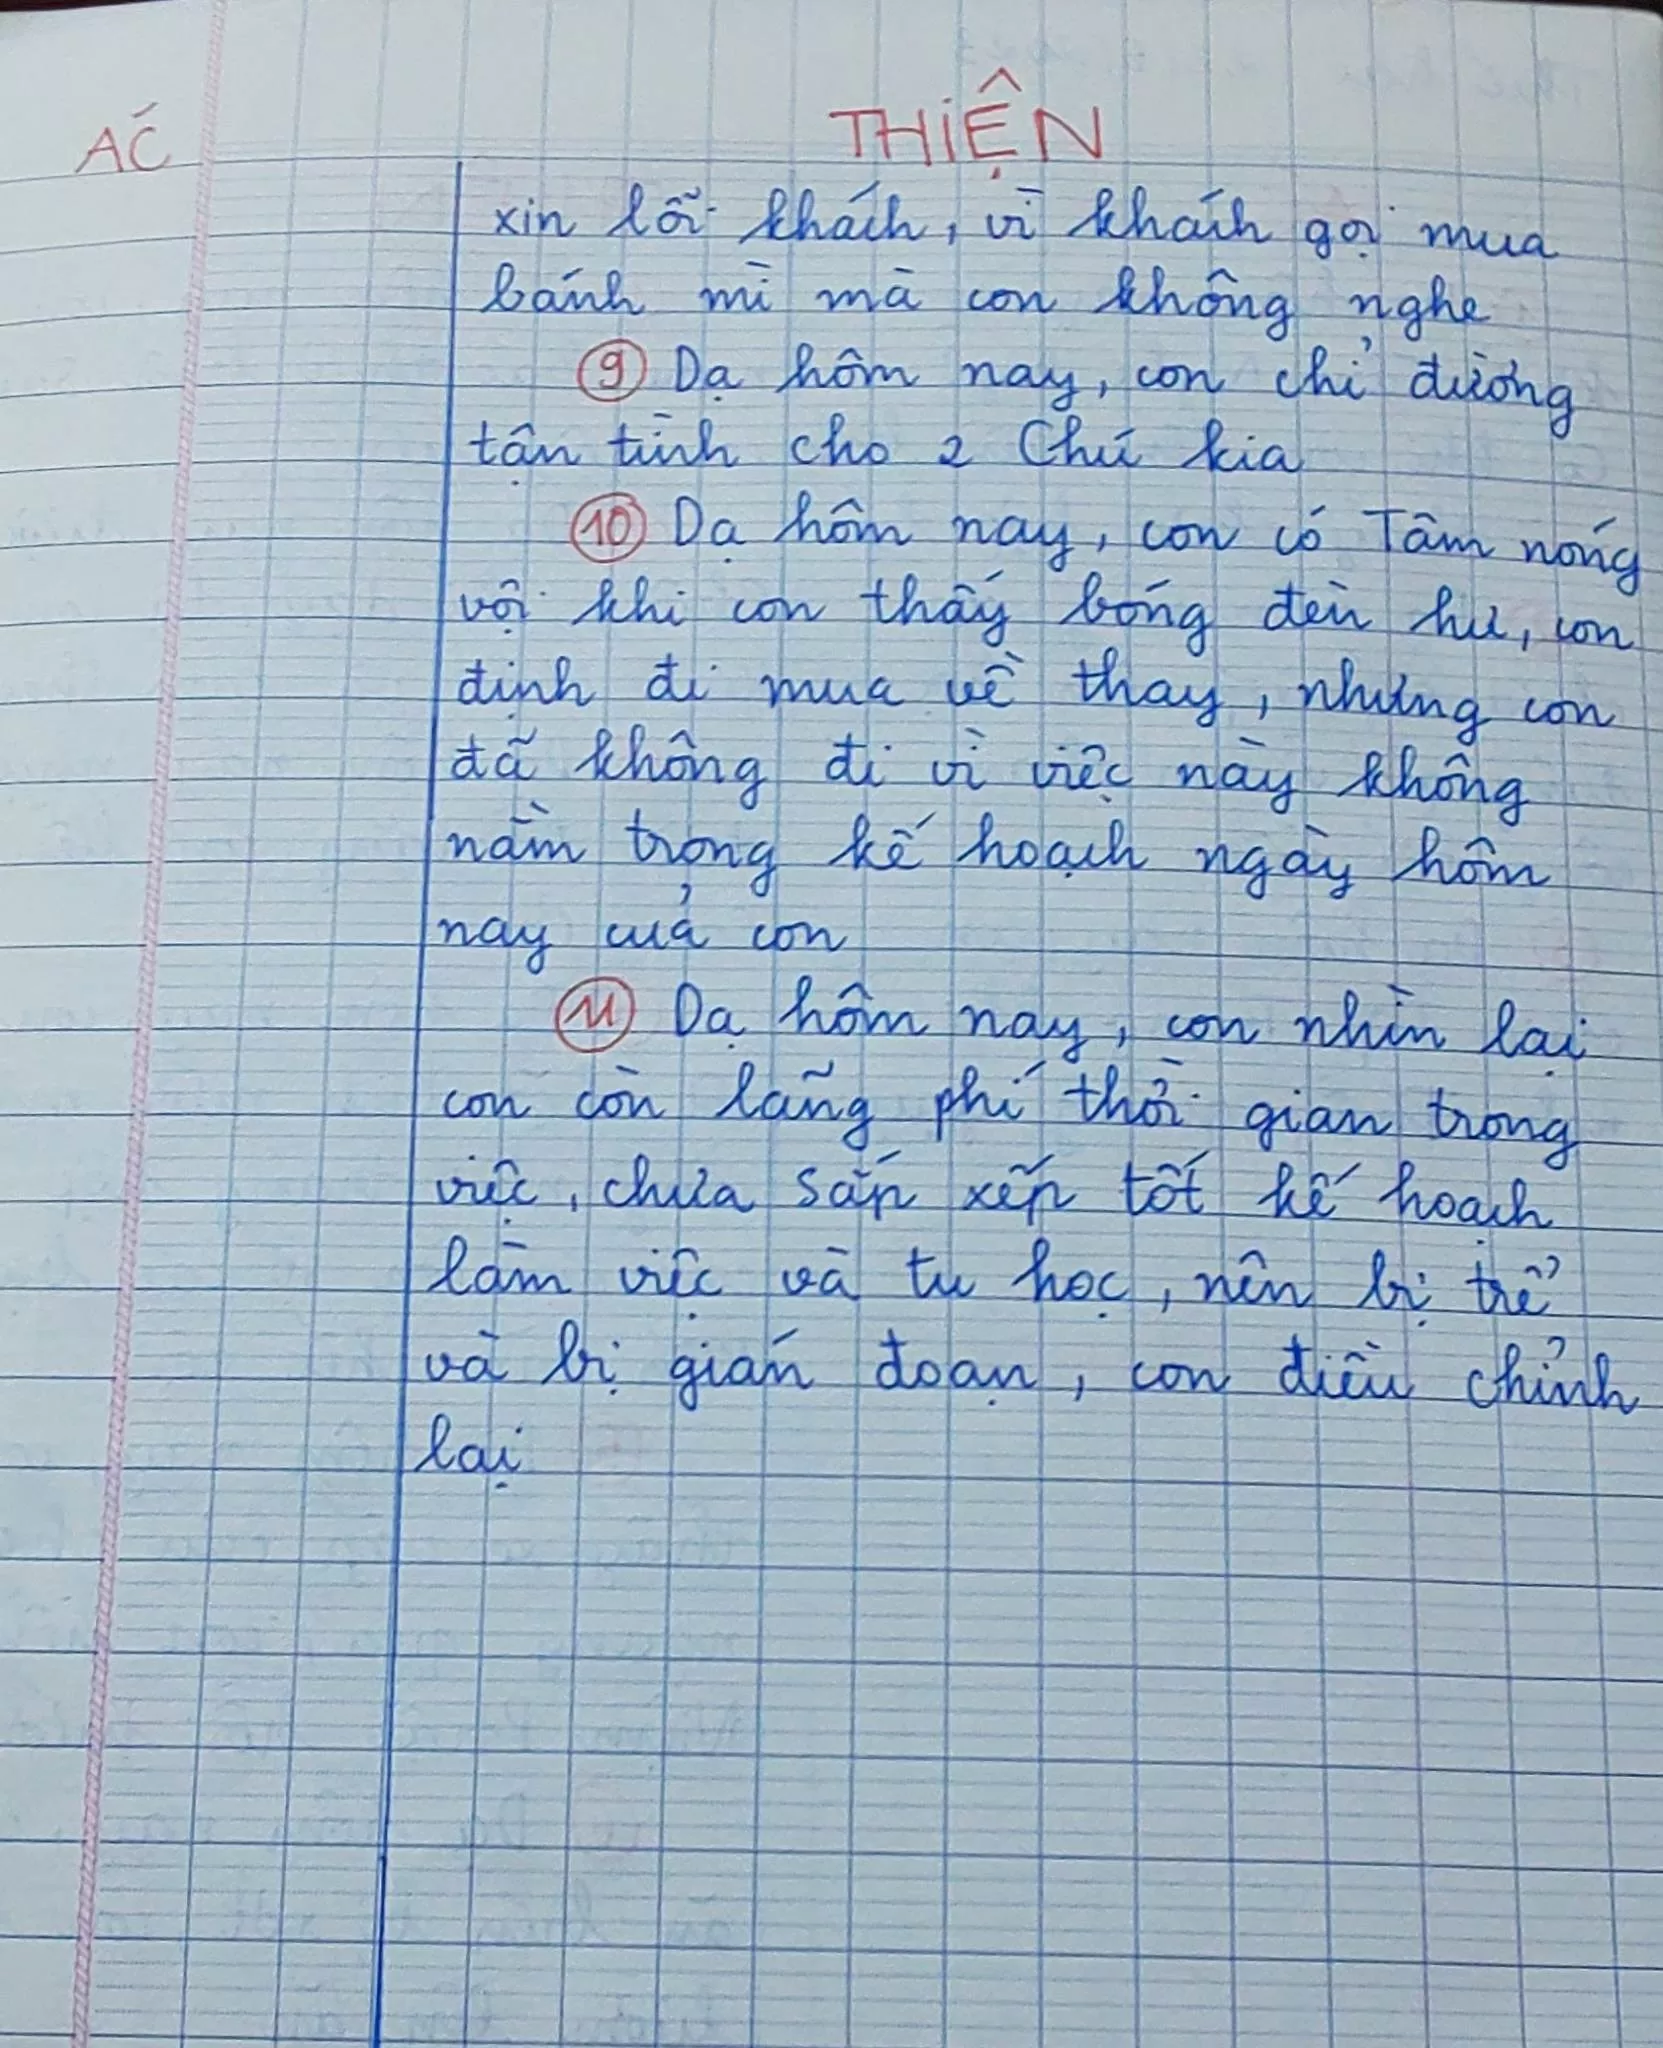 ÁC
THIỆN
xin lỗi khách, vì khách gọi mua
bánh mì mà con không nghe
9 Dạ hôm nay, con chỉ đường
tận tình cho 2 Chú kia
10 Dạ hôm nay, con có Tâm nóng
vội khi con thấy bóng đèn hư, con
định đi mua về thay, nhưng con
đã không đi vì việc này không
nằm trong kế hoạch ngày hôm
nay của con
11 Dạ hôm nay, con nhìn lại
con còn lãng phí thời gian trong
việc, chưa sắp xếp tốt kế hoạch
làm việc và tu học, nên bị trể
và bị gián đoạn, con điều chỉnh
lại